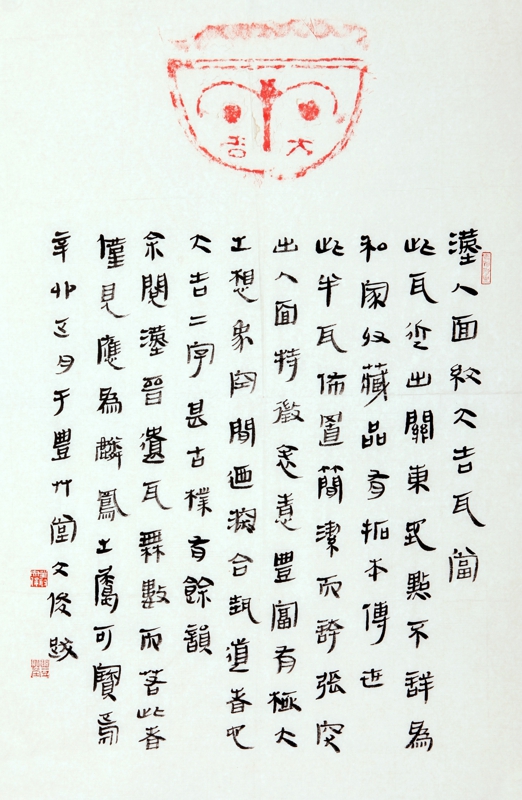 大吉
漢人面紋大吉瓦當
此瓦近出關東點不詳為
私家收藏品有拓本傳世
此半瓦佈置簡潔而誇張突
出人面特徵意豐富有極大
之想象空間迺合道者也
大吉二字甚古樸有餘韻
余閱漢晉遺瓦無數而若此者
僅見應為麟鳳之屬可寶焉
辛卯五月于豐艸堂文俊跋